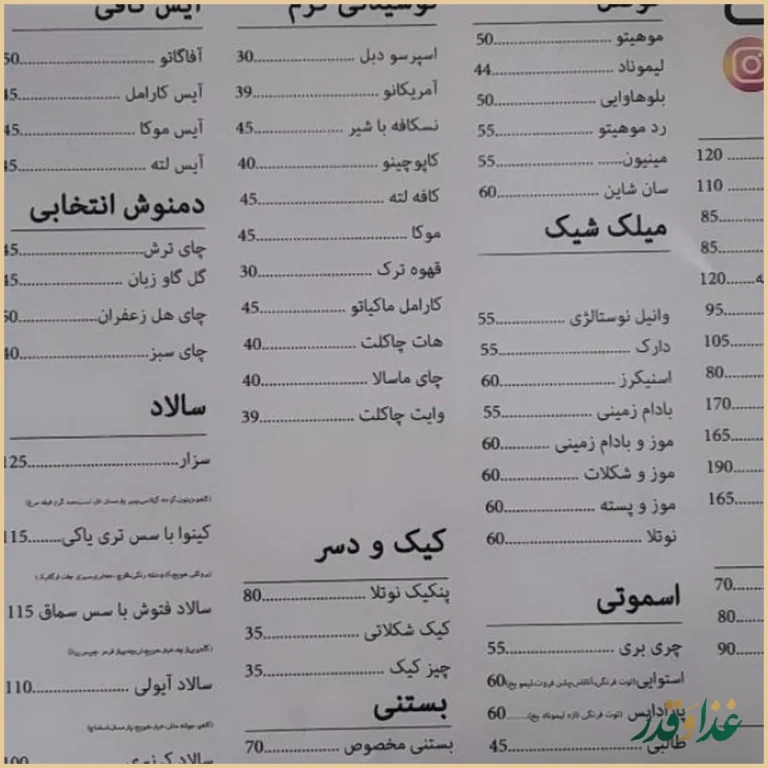 موهیتو ........ 50
لیموناد ........ 44
بلوهاوایی ........ 50
رد موهیتو ........ 55
مینیون ........ 55
سان شاین ........ 60
میلک شیک
وانیل نوستالژی ........ 55
دارک ........ 55
اسنیکرز ........ 60
بادام زمینی ........ 55
موز و بادام زمینی ........ 60
موز و شکلات ........ 60
موز و پسته ........ 60
نوتلا ........ 60
اسموتی
چری بری ........ 55
استوایی 60
پارادایس 60
طالبی ........ 45
اسپرسو دبل ........ 30
آمریکانو ........ 39
نسکافه با شیر ........ 45
کاپوچینو ........ 40
کافه لته ........ 45
موکا ........ 45
قهوه ترک ........ 30
کارامل ماکیاتو ........ 45
هات چاکلت ........ 40
چای ماسالا ........ 40
وایت چاکلت ........ 39
کیک و دسر
پنکیک نوتلا ........ 80
کیک شکلاتی ........ 35
چیز کیک ........ 35
بستنی
بستنی مخصوص ........ 70
آیس کافی
آفاگاتو ........
آیس کارامل ........
آیس موکا ........
آیس لته ........
دمنوش انتخابی
چای ترش ........
گل گاو زبان ........
چای هل زعفران ........
چای سبز ........
سالاد
سزار ........ 125
کینوا با سس تری یاکی ........ 115
سالاد فتوش با سس سماق 115
سالاد آیولی ........ 110
120
110
85
85
120
95
105
80
170
165
190
165
70
80
90
غذا و قدر